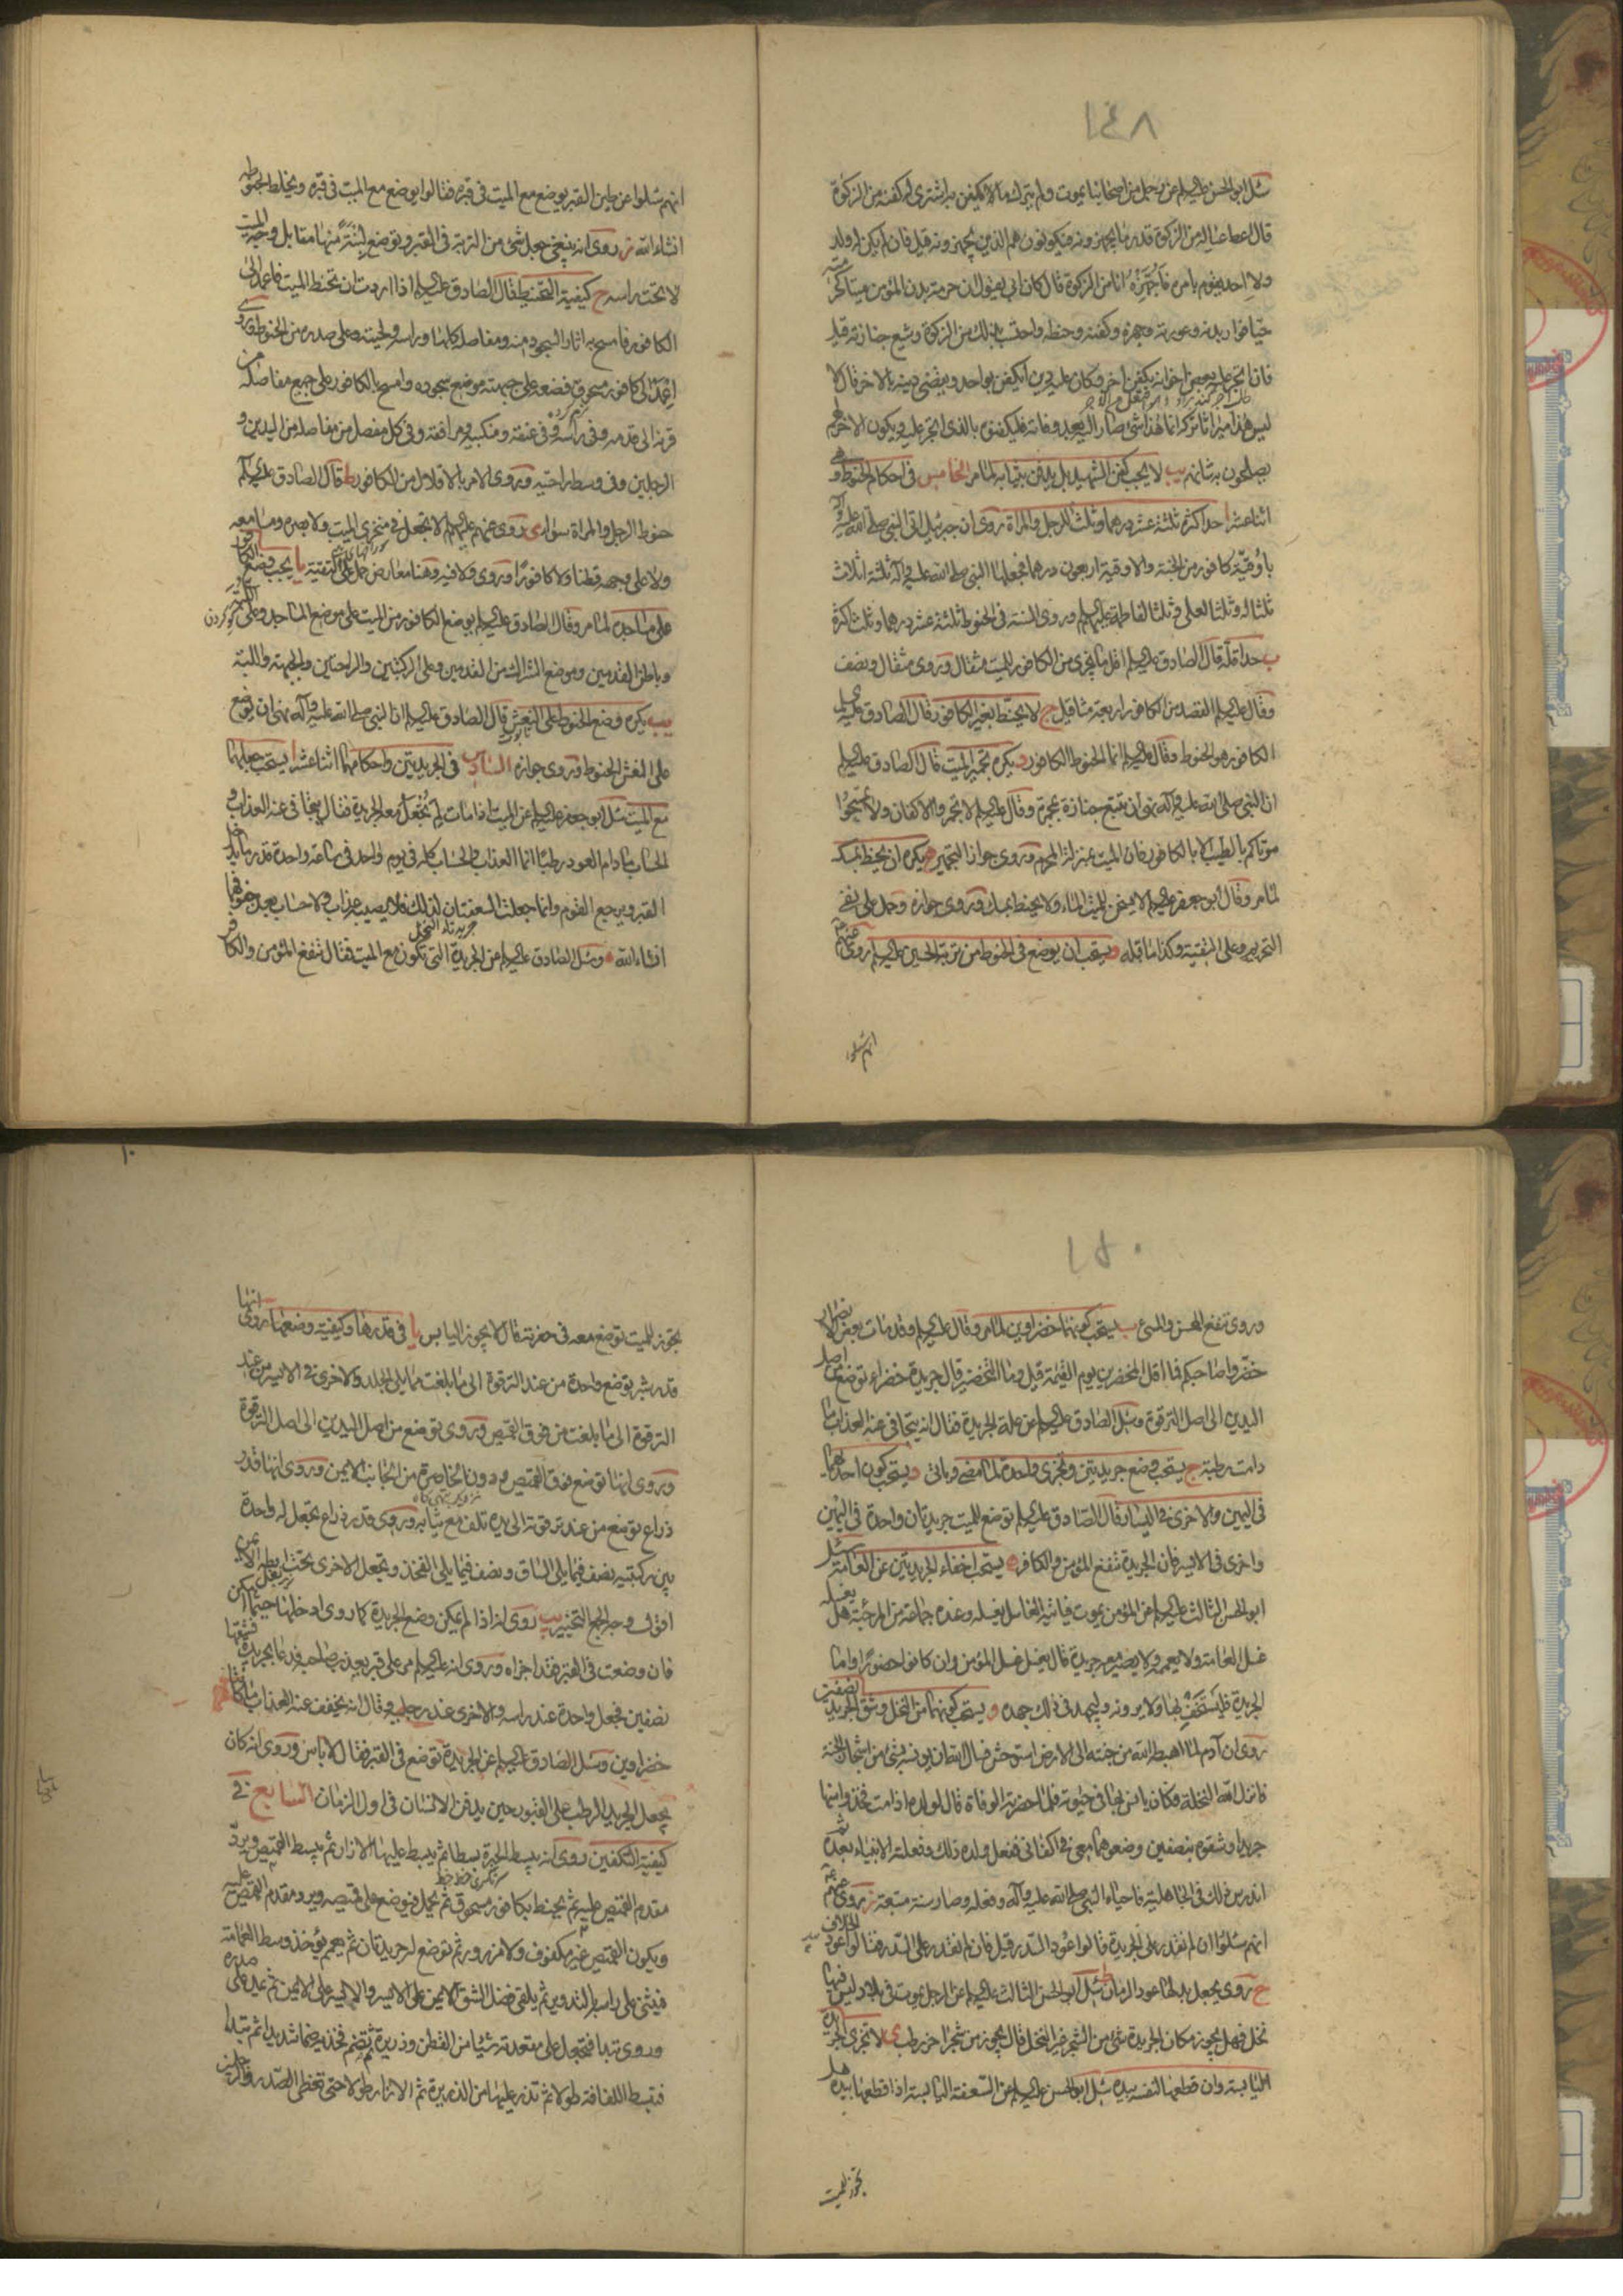 ١٤٨
سئل ابو الحسن عليه السلم عن رجل من اصحابنا يموت ولم يترك ما لا يكفن به اشترى له كفنه من الزكوة
قال اعط عياله من الزكوة قدر ما يجهزونه فيكونون هم الذين يجهزونه قيل فان لم يكن له ولد
ولا احد يقوم بامره فاجهزه انا من الزكوة قال كان ابي يقول ان حرمة بدن المؤمن ميتا كحرمته
حيا فوار بدنه وعورته وجهزه وكفنه وحنطه واحتسب بذلك من الزكوة وشيع جنازته قيل
فان اتجر عليه بعض اخوانه بكفن اخر وكان عليه دين ايكفن بواحد ويقضى دينه بالاخر قال لا
ليس هذا ميراثا تركه انما هذا شئ صار اليه بعد وفاته فليكفنوه بالذى اتجر عليه ويكون الاخر لهم
يصلحون به شانهم يب لا يجب كفن الشهيد بل يدفن بثيابه لما مر الخامس فى احكام الحنوط وهى
اثنا عشر ا حد اكثره ثلثة عشر درهما وثلث للرجل والمراة روى ان جبرئيل اتى النبى صلى الله عليه وآله
باوقية كافور من الجنة والاوقية اربعون درهما فجعلها النبى صلى الله عليه وآله ثلثة اثلاث
ثلثا له وثلثا لعلى وثلثا لفاطمة عليهم السلم وروى السنة فى الحنوط ثلثة عشر درهما وثلث اكثره
ب حد اقله قال الصادق عليه السلم اقل ما يجزى من الكافور للميت مثقال وروى مثقال ونصف
وقال عليه السلم القصد من الكافور اربعة مثاقيل ج لا يحنط بغير الكافور قال الصادق عليه السلم
الكافور هو الحنوط وقال عليه السلم انما الحنوط الكافور د يكره تجمير الميت قال الصادق عليه السلم
ان النبى صلى الله عليه وآله نهى ان تتبع جنازة بمجمرة وقال عليه السلم لا تجمروا الاكفان ولا تمسحوا
موتاكم بالطيب الا بالكافور فان الميت بمنزلة المحرم وروى جواز التجمير ه يكره ان يحنط بمسك
لما مر وقال ابو جعفر عليه السلم لا يسخن للميت الماء ولا يحنط بمسك وروى جوازه وحمل على نفى
التحريم وعلى التقية وكذا ما قبله و يستحب ان يوضع فى الحنوط من تربة الحسين عليه السلم روى عنهم
انهم سئلوا
انهم سئلوا عن طين القبر يوضع مع الميت فى قبره فقالوا يوضع مع الميت فى قبره ويخلط بحنوطه
انشاء الله ز روى انه ينبغى جعل شئ من التربة فى القبر وتوضع لبنة منها مقابل وجه الميت
لا تحت راسه ح كيفية التحنيط قال الصادق عليه السلم اذا اردت ان تحنط الميت فاعمد الى
الكافور فامسح به اثار السجود منه ومفاصله كلها وراسه ولحيته وعلى صدره من الحنوط وروى
اعمد الى كافور مسحوق فضعه على جبهته موضع سجوده وامسح بالكافور على جميع مفاصله من
قرنه الى قدمه وفى راسه وفى عنقه ومنكبيه ومرافقه وفى كل مفصل من مفاصله من اليدين و
الرجلين وفى وسط راحتيه وروى الامر بالاقلال من الكافور ط قال الصادق عليه السلم
حنوط الرجل والمراة سواء ى روى عنهم عليهم السلم لا تجعل فى منخرى الميت ولا بصره ومسامعه
ولا على وجهه قطنا ولا كافورا وروى ولا فيه وهنا معارض حمل على التقية يا يجب وضع الكافور
على مساجده لما مر وقال الصادق عليه السلم يوضع الكافور من الميت على موضع المساجد وعلى اللبة
وباطن القدمين وموضع الشراك من القدمين وعلى الركبتين والراحتين والجبهة واللبة
يب يكره وضع الحنوط على النعش قال الصادق عليه السلم ان النبى صلى الله عليه وآله نهى ان يوضع
على النعش الحنوط وروى جوازه السادس فى الجريدتين واحكامهما اثنا عشر ا يستحب جعلهما
مع الميت سئل ابو جعفر عليه السلم عن الميت اذا مات لم تجعل معه الجريدة فقال يتجافى عنه العذاب و
الحساب مادام العود رطبا انما العذاب والحساب كله فى يوم واحد فى ساعة واحدة قدر ما يدخل
القبر ويرجع القوم وانما جعلت السعفتان لذلك فلا يصيبه عذاب ولا حساب بعد جفوفهما
انشاء الله ه وسئل الصادق عليه السلم عن الجريدة التى تكون مع الميت فقال تنفع المؤمن والكافر
١٥٠
وروى تنفع المحسن والمسئ ب يستحب كونهما خضراوين لما مر وقال عليه السلم وقد مات بعض الانصار
خضروا صاحبكم فما اقل المخضرين يوم القيمة قيل وما التخضير قال جريدة خضراء توضع من اصل
اليدين الى اصل الترقوة وسئل الصادق عليه السلم عن علة الجريدة فقال انه يتجافى عنه العذاب ما
دامت رطبة ج يستحب وضع جريدتين وتجزى واحدة لما مضى وياتى د يستحب كون احدهما
فى اليمين والاخرى فى اليسار قال الصادق عليه السلم توضع للميت جريدتان واحدة فى اليمين
واخرى فى الايسر فان الجريدة تنفع المؤمن والكافر ه يستحب اخفاء الجريدتين عن العامة سئل
ابو الحسن الثالث عليه السلم عن المؤمن يموت فياتيه الغاسل يغسله وعنده جماعة من المرجئة هل يغسله
غسل العامة ولا يعممه ولا يصير معه جريدة قال يغسل غسل المؤمن وان كانوا حضورا واما
الجريدة فليستخف بها ولا يرونه وليجهد فى ذلك جهده و يستحب كونهما من النخل وشق الجريدة بنصفين
روى ان آدم لما اهبطه الله من جنته الى الارض استوحش فسال الله ان يونسه بشئ من اشجار الجنة
فانزل الله النخلة فكان يانس بها فى حيوته فلما حضرته الوفاة قال لولده اذا مت فخذوا منها
جريدا وشقوه بنصفين وضعوهما معى فى اكفانى ففعل ولده ذلك وفعلته الانبياء بعده ثم
اندرس ذلك فى الجاهلية فاحياه النبى صلى الله عليه وآله وفعله وصار سنة متبعة ز روى عنهم
انهم سئلوا ان لم نقدر على الجريدة قالوا عود السدر قيل فان لم نقدر على السدر فقالوا عود الخلاف
ح روى يجعل بدلها عود الرمان ط سئل ابو الحسن الثالث عليه السلم عن الرجل يموت فى بلاد ليس فيها
نخل فهل يجوز مكان الجريدة شئ من الشجر غير النخل قال يجوز من شجر اخر رطب ى لا تجزى الجريدة
اليابسة وان قطعها لنفسه بيده سئل ابو الحسن عليه السلم عن السعفة اليابسة اذا قطعها بيده هل
تجوز للميت
تجوز للميت توضع معه فى حفرته قال لا يجوز اليابس يا فى قدرها وكيفية وضعها روى انها
قدر شبر توضع واحدة من عند الترقوة الى ما بلغت مما يلى الجلد والاخرى فى الايسر من عند
الترقوة الى ما بلغت من فوق القميص وروى توضع من اصل اليدين الى اصل الترقوة
وروى انها توضع فوق القميص ودون الخاصرة من الجانب الايمن وروى انها قدر
ذراع توضع من عند ترقوته الى يده تلف مع ثيابه وروى قدر ذراع تجعل له واحدة
بين ركبتيه نصف فيما يلى الساق ونصف فيما يلى الفخذ وتجعل الاخرى تحت ابطه الايمن
اقول وجه الجمع التخيير يب روى انه اذا لم يمكن وضع الجريدة كما روى ادخلها حيثما امكن
فان وضعت فى القبر فقد اجزاه وروى انه عليه السلم مر على قبر يعذب صاحبه فدعا بجريدة فشقها
نصفين فجعل واحدة عند راسه والاخرى عند رجليه وقال انه يخفف عنه العذاب ما كانتا
خضراوين وسئل الصادق عليه السلم عن الجريدة توضع فى القبر فقال لا باس وروى انه كان
يجعل الجريد الرطب على القبور حين يدفن الانسان فى اول الزمان السابع فى
كيفية التكفين روى انه يبسط الحبرة بسطا ثم يبسط عليها الازار ثم يبسط القميص ويرد
مقدم القميص عليه ثم يحنط بكافور مسحوق ثم يحمل فيوضع على قميصه ويرد مقدم القميص عليه
ويكون القميص غير مكفوف ولا مزرور ثم توضع له جريدتان ثم يعمم يؤخذ وسط العمامة
فيثنى على راسه بالتدوير ثم يلقى فضل الشق الايمن على الايسر والايسر على الايمن ثم يمد على صدره
وروى تبدا فتجعل على مقعدته شيئا من القطن وذريرة ثم تضم فخذيه ضما شديدا ثم تبدا
فتبسط اللفافة طولا ثم تذر عليها من الذريرة ثم الازار طولا حتى تغطى الصدر والرجلين